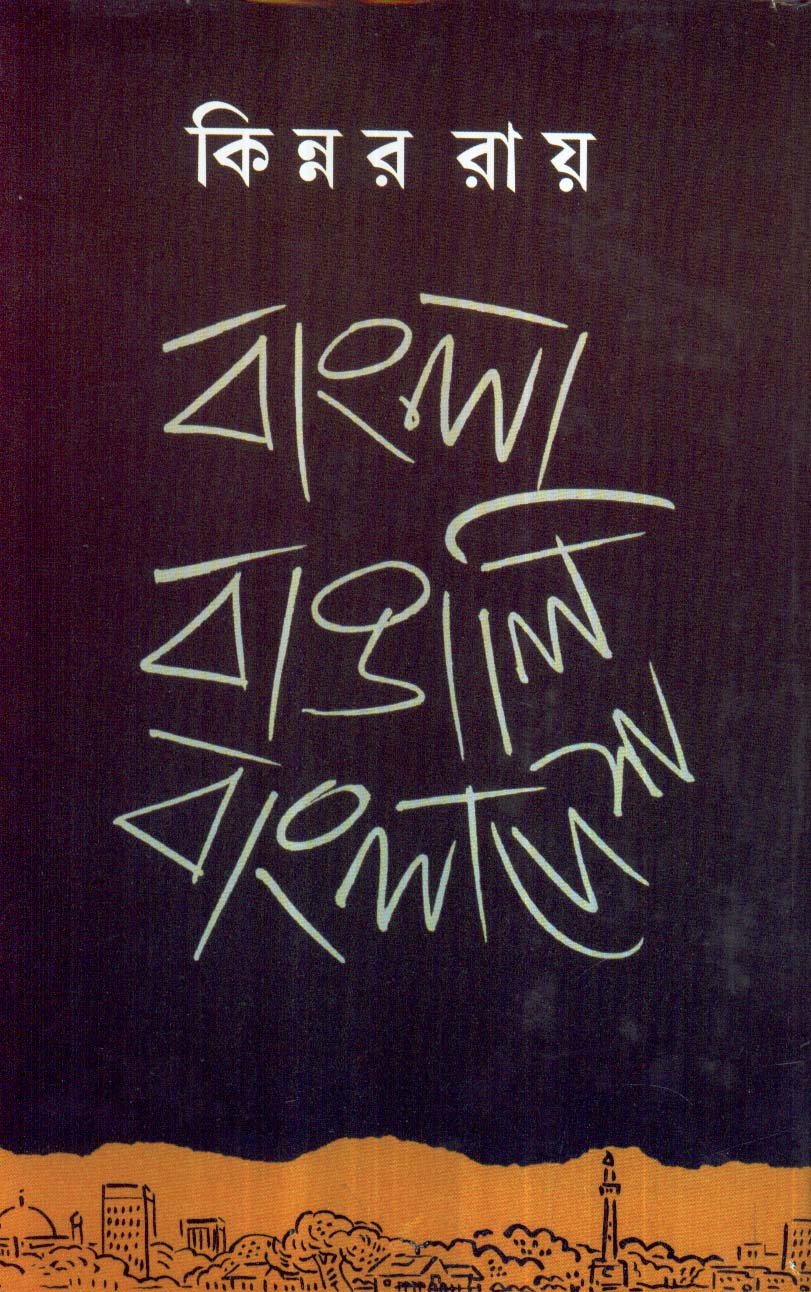 কিন্নর রায়
বাংলা
বাঙালি
বাংলাদেশ